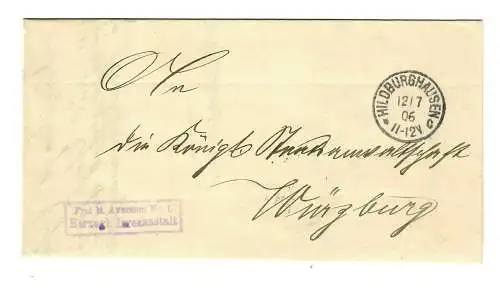 An
HILDBURGHAUSEN
12/7
06
11-12V
die Königl. Staatsanwaltschaft
Würzburg
Frei lt. Aversum No. 1.
Herzogl. Irrenanstalt